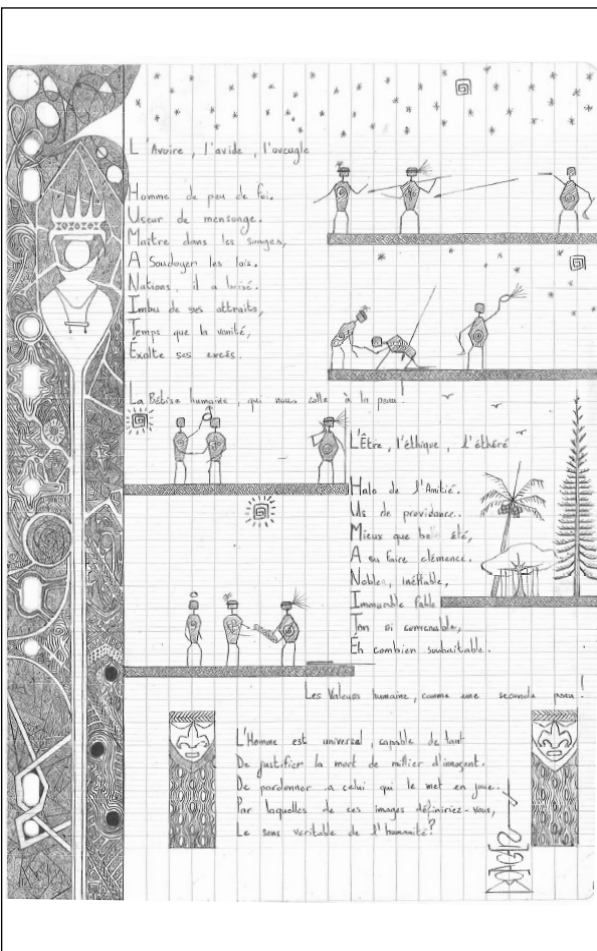 L'Avoire, l'avide, l'aveugle
Homme de peu de foi.
Useur de mensonge.
Maître dans les songes,
A Soudoyer les lois.
Nations, il a brisé.
Imbu de ses attraits,
Temps que la vanité,
Éxalte ses excès.
La Bétise humaine, qui nous colle à la peau!
L'Être, l'éthique, l'éthéré
Halo de l'Amitié.
Us de providance.
Mieux que été,
A su faire clémence.
Noble, inéffable,
Immuable fable
Ton si convenable,
Éh combien souhaitable.
Les Valeurs humaine, comme une seconde peau!
L'Homme est universel, capable de tant
De justifier la mort de millier d'innoçent.
De pardonner a celui qui le met en joue.
Par laquelles de ces images définiriez-vous,
Le sens véritable de l'humanité?